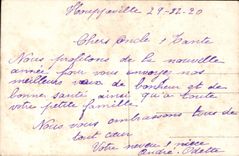 29-12-20
Chers Oncle & Tante
Nous profitons de la nouvelle
année pour vous envoyer nos
meilleurs vœux de bonheur et de
bonne santé ainsi qu'à toute
votre petite famille.
Nous vous embrassons tous de
tout cœur
Votre neveu & nièce
André - Odette